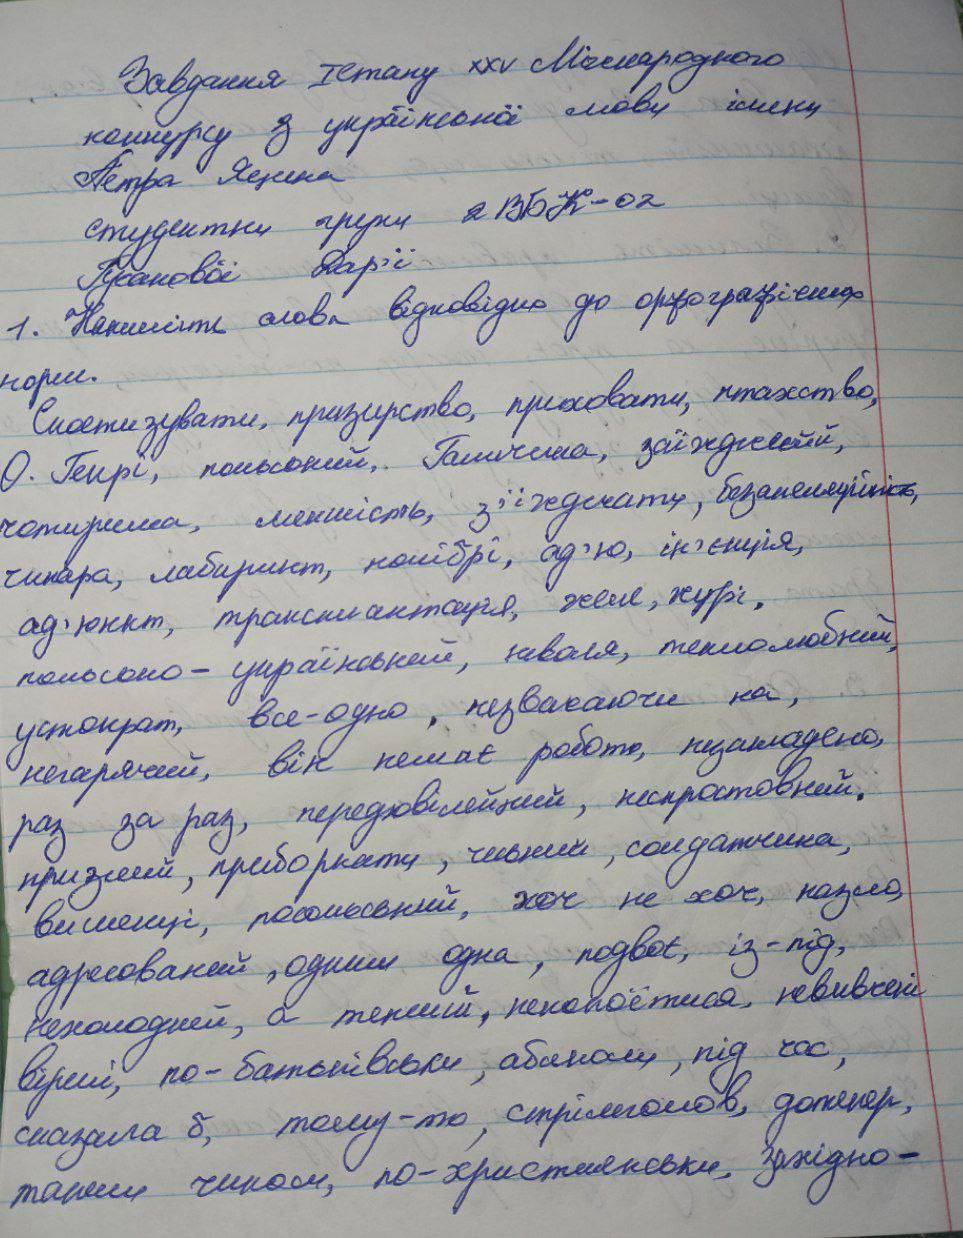 Завдання І етапу XXV Міжнародного
конкурсу з української мови імені
Петра Яцика
студентки групи 2ВБК-02
Русанової Дар'ї
1. Напишіть слова відповідно до орфографічних
норм.
Скептизувати, призирство, приховати, птахство,
О. Генрі, польський, Галичина, заїжджений,
чотирма, меншість, з'їжджати, безапеляційність,
чинара, лабіринт, ноябрі, ад'ю, ін'єкція,
ад'юнкт, трансплантація, желе, журі,
польсько-український, ніволя, теплолюбний,
устократ, все-одно, незважаючи на,
негарячий, він немає роботи, незакладено,
раз за раз, передювілейний, неспростовний,
призмий, приборкати, чільний, солдатчина,
вишенці, посольський, хоч не хоч, назло,
адресований, одним одна, подвоє, із-під,
нехолодний, а теплий, непокоїтися, невивчені
вірші, по-батьківськи, абиколи, під час,
сказала б, тому-то, стрімголов, дотепер,
таким чином, по-християнськи, західно-